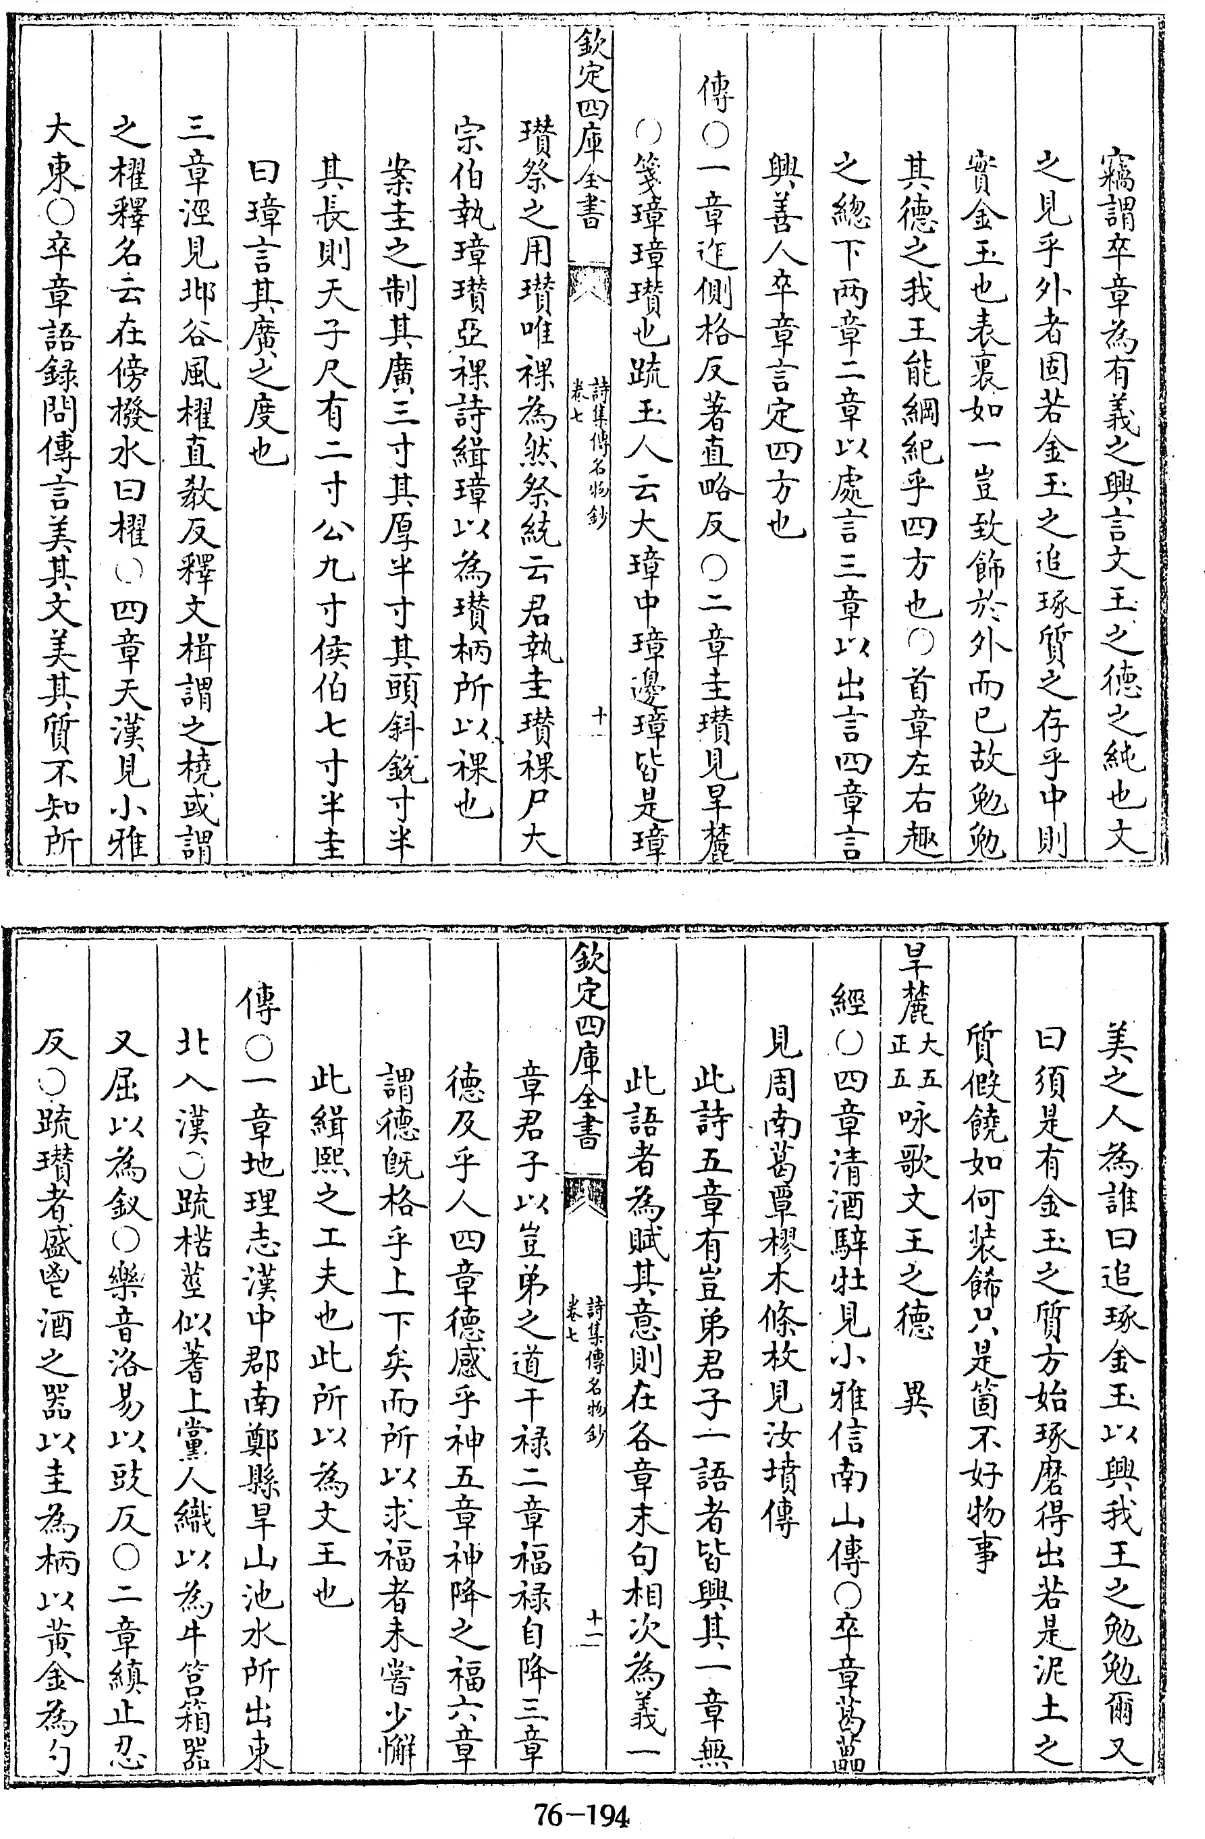 竊謂卒章為有義之興言文王之德之純也文
之見乎外者固若金玉之追琢質之存乎中則
實金玉也表裏如一豈致飾於外而已故勉勉
其德之我王能綱紀乎四方也○首章左右趣
之總下两章二章以處言三章以出言四章言
興善人卒章言定四方也
傳○一章迮側格反著直略反○二章圭瓚見旱麓
○箋璋璋瓚也疏玉人云大璋中璋邊璋皆是璋
欽定四庫全書
詩集傳名物鈔
卷七
十一
瓚祭之用瓚唯祼為然祭統云君執圭瓚祼尸大
宗伯執璋瓚亞祼詩緝璋以為瓚柄所以祼也
案圭之制其廣三寸其厚半寸其頭斜銳寸半
其長則天子尺有二寸公九寸侯伯七寸半圭
曰璋言其廣之度也
三章涇見邶谷風櫂直教反釋文楫謂之橈或謂
之櫂釋名云在傍撥水曰櫂○四章天漢見小雅
大東○卒章語錄問傳言美其文美其質不知所
美之人為誰曰追琢金玉以興我王之勉勉爾又
曰須是有金玉之質方始琢磨得出若是泥土之
質假饒如何裝飾只是箇不好物事
旱麓大五正五咏歌文王之德 異
經○四章清酒騂牡見小雅信南山傳○卒章葛藟
見周南葛覃樛木條枚見汝墳傳
此詩五章有豈弟君子一語者皆興其一章無
此語者為賦其意則在各章末句相次為義一
欽定四庫全書
詩集傳名物鈔
卷七
十二
章君子以豈弟之道干禄二章福禄自降三章
德及乎人四章德感乎神五章神降之福六章
謂德既格乎上下矣而所以求福者未嘗少懈
此緝熙之工夫也此所以為文王也
傳○一章地理志漢中郡南鄭縣旱山池水所出東
北入漢○疏楛莖似蓍上黨人織以為牛筥箱器
又屈以為釵○樂音洛易以豉反○二章縝止忍
反○疏瓚者盛鬯酒之器以圭為柄以黃金為勺
76-194